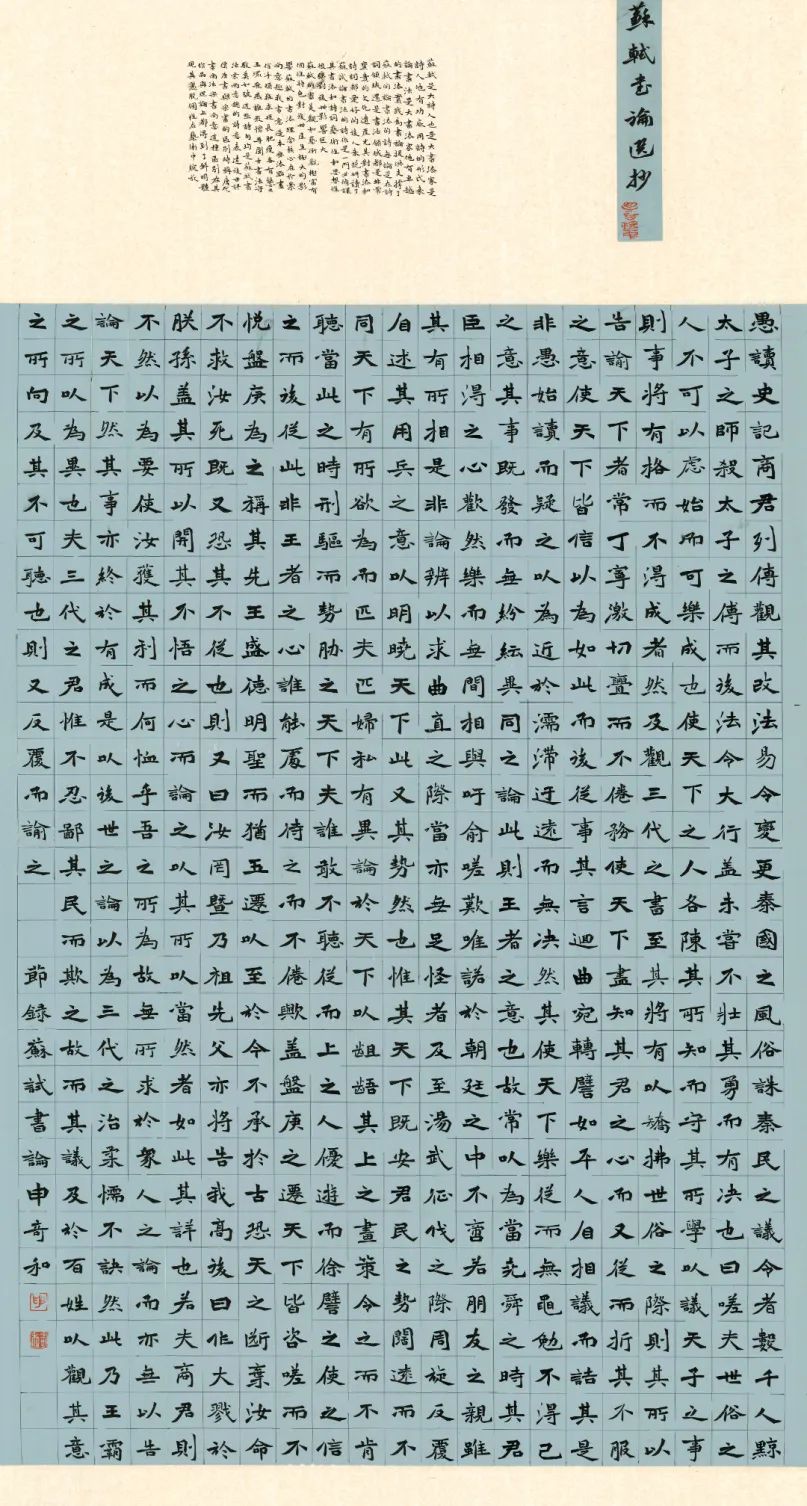 蘇軾書論選抄
蘇軾是大詩人也是大書法家是
詩人也有功底用詩的形式來
論書法是大書法家他有卓越
的書法實踐為書論提供支撐了
愚讀史記商君列傳觀其改法易令變更秦國之風俗誅秦民之議令者數千人黥
太子之師殺太子之傅而後法令大行蓋未嘗不壯其勇而有决也曰嗟夫世俗之
人不可以慮始而可樂成也使天下之人各陳其所知而守其所學以議天子之事
則事將有格而不得成者然及觀三代之書至其將有以矯拂世俗之際則其所以
告諭天下者常丁寧激切亹而不倦務使天下盡知其君之心而又從而折其不服
之意使天下皆信以為如此而後從事其言迴曲宛轉譬如平人自相議而詰其是
非愚始讀而疑之以為近於濡滯迂遠而無决然其使天下樂從而無黽勉不得已
之意其事既發而無紛紜異同之論此則王者之意也故常以為當堯舜之時其君
臣相得之心歡然樂而無間相與吁俞嗟歎唯諾於朝廷之中不啻若朋友之親雖
其有所相是非論辨以求曲直之際當亦無足怪者及至湯武征伐之際周旋反覆
自述其用兵之意以明曉天下此又其勢然也惟其天下既安君民之勢闊遠而不
同天下有所欲為而匹夫匹婦私有異論於天下以齟齬其上之畫策令之而不肯
聽當此之時刑驅而勢脅之天下夫誰敢不聽從而上之人優遊而徐譬之使之信
之而後從此非王者之心誰能處而待之而不倦歟蓋盤庚之遷天下皆咨嗟而不
悅盤庚為之稱其先王盛德明聖而猶五遷以至於今不承於古恐天之断棄汝命
不救汝死既又恐其不從也則又曰汝罔暨乃祖先父亦將告我高後曰作大戮於
朕孫蓋其所以開其不悟之心而論之以其所以當然者如此其詳也若夫商君則
不然以為要使汝獲其利而何恤乎吾之所為故無所求於衆人之論而亦無以告
論天下然其事亦終於有成是以後世之論以為三代之治柔懦不訣然此乃王霸
之所以為異也夫三代之君惟不忍鄙其民而欺之故而其議及於百姓以觀其意
之所向及其不可聽也則又反覆而諭之 節録蘇軾書論申奇和